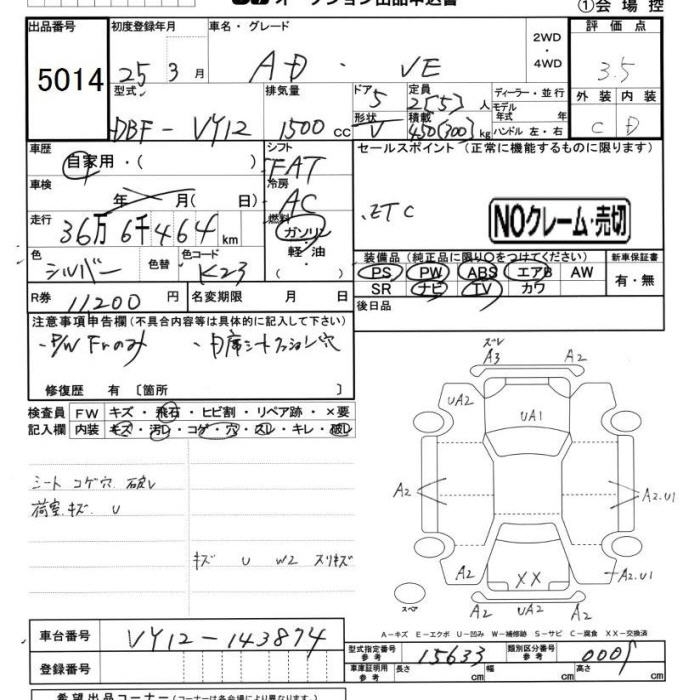 オークション出品申込書
①会場控
出品番号 初度登録年月 車名・グレード 評価点
5014 25 3月 AD・VE 2WD・4WD 3.5
型式 排気量 ドア 定員 ディーラー・並行 外装 内装
DBF-VY12 1500cc 5 2[5]人 モデル年式 年 C D
形状 積載 ハンドル 左・右
V 450(300)kg
車歴 シフト セールスポイント (正常に機能するものに限ります)
自家用・( ) FAT
車検 冷房
年 月( 日) AC ETC NOクレーム・売切
走行 燃料
36万6千464km ガソリン・軽油・
色 色替 色コード 装備品 (純正品に限り○をつけてください) 新車保証書
シルバー K23 PS PW ABS エアB AW 有・無
SR ナビ TV カワ
R券 11,200円 名変期限 月 日 後日品
注意事項申告欄(不具合内容等は具体的に記入して下さい)
・P/W Frのみ
修復歴 有 [箇所 ]
検査員 FW キズ・飛石・ヒビ割・リペア跡・×要
記入欄 内装 キズ・汚レ・コゲ・穴・スレ・キレ・破レ
シート コゲ穴 破レ
荷室 キズ U
キズ U W2 スリキズ
ズレ
A3 A2
UA2 UA1
A2 A2.U1
A2 XX A2.U1
スペア A2 UA2 A2
A-キズ E-エクボ U-凹み W-補修跡 S-サビ C-腐食 XX-交換済
車台番号 VY12-143874 型式指定番号 参考 15633 類別区分番号 参考
登録番号 車検証明用 参考 長さ cm 幅 cm 高さ cm
希望出品コーナー(コーナーは各会場により異なります)